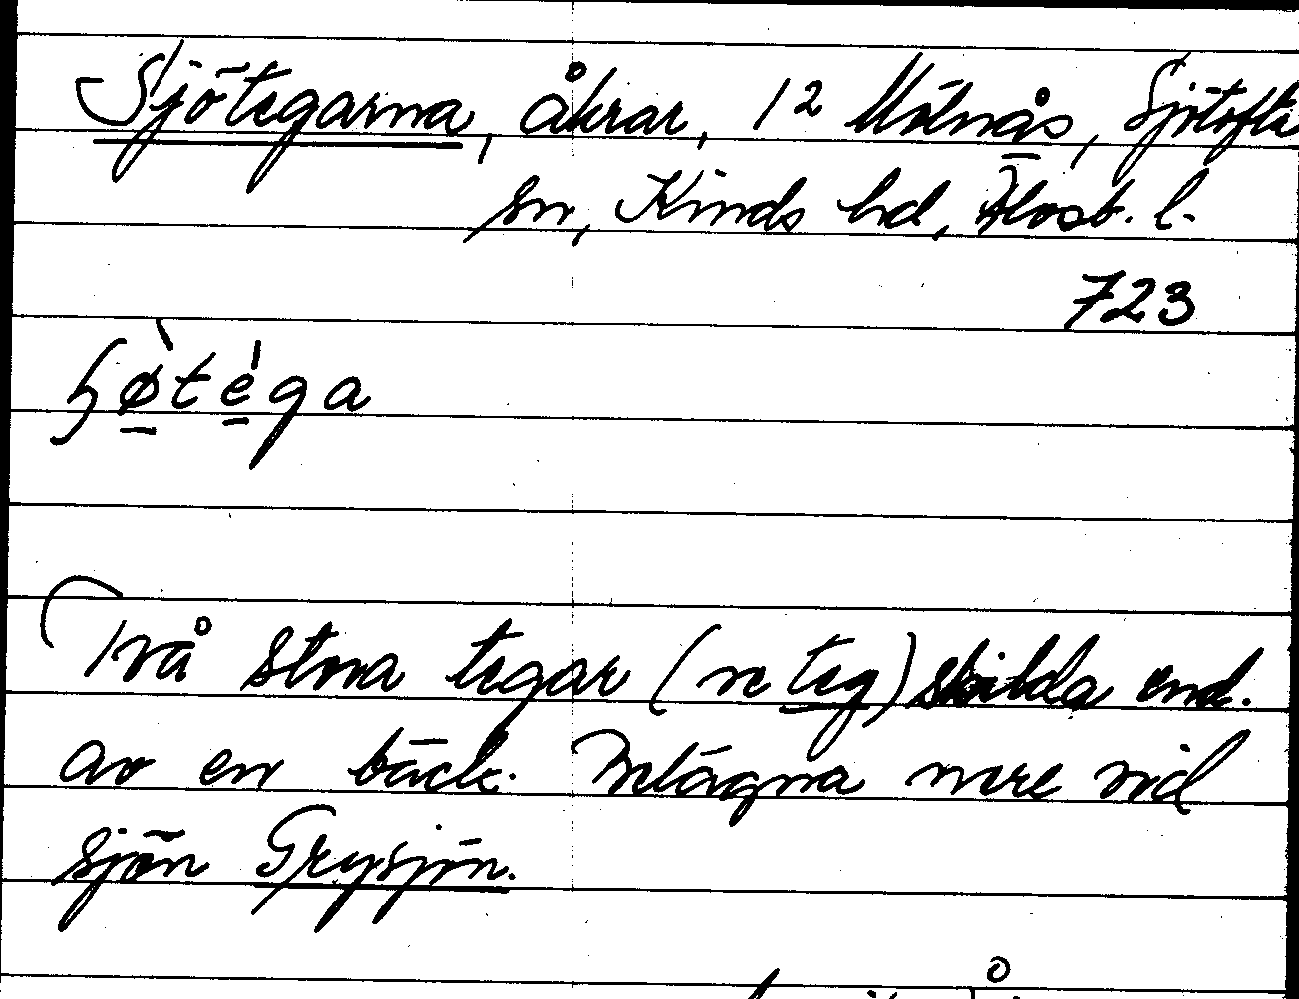 Sjötegarna, åkrar, 12 Mölnås, Sjötofta
sn, Kinds hd, Älvsb. l.
723
ɧø̀tèga
Två stora tegar (n teg) skilda end.
av en bäck. Belägna nere vid
sjön Grysjön.